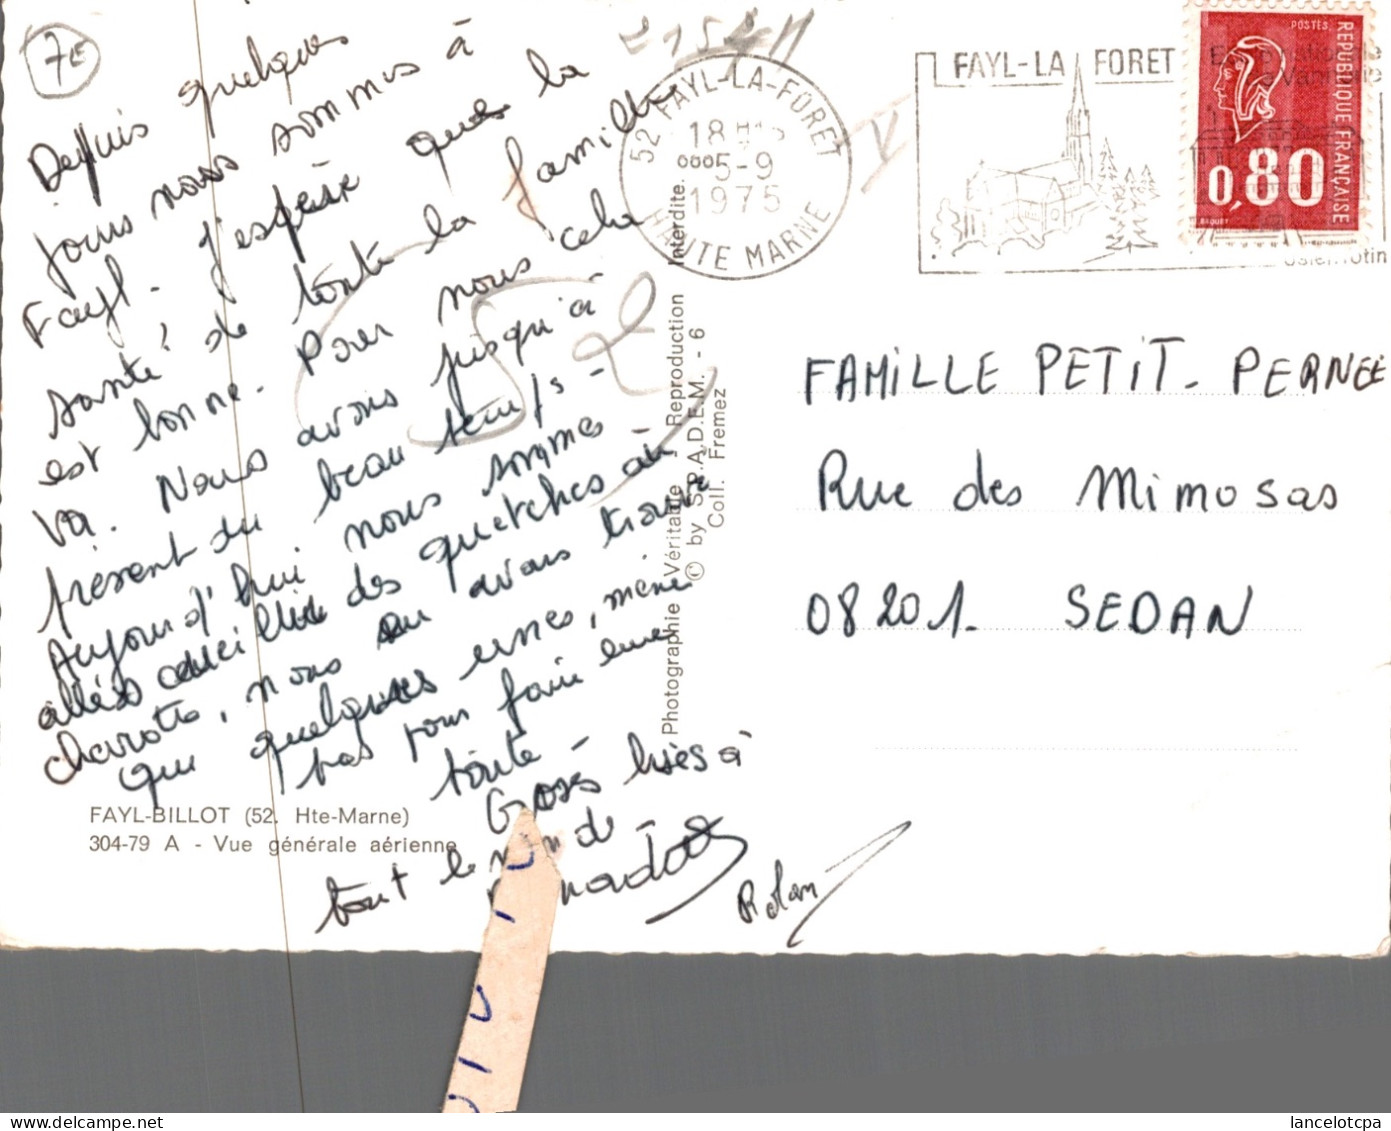 7E
Depuis quelques
jours nous sommes à
Fayl. J'espère que la
santé de toute la famille
est bonne. Pour nous cela
va. Nous avons jusqu'à
présent du beau temps -
Aujourd'hui nous sommes
allés cueillir des quetches au
charotte, nous en avons trouvé
que quelques unes, même
pas pour faire une
toute
Gross bises à
tout le monde
Rolan
FAYL-BILLOT (52. Hte-Marne)
304-79 A - Vue générale aérienne
Photographie Véritable - Reproduction Interdite.
© by S.P.A.D.E.M. - 6
Coll. Fremez
52 FAYL-LA-FORET
18H15
5-9
1975
HAUTE MARNE
FAYL-LA FORET
POSTES
REPUBLIQUE FRANÇAISE
0,80
FAMILLE PETIT- PERNEE
Rue des Mimosas
08201. SEDAN
lancelotcpa